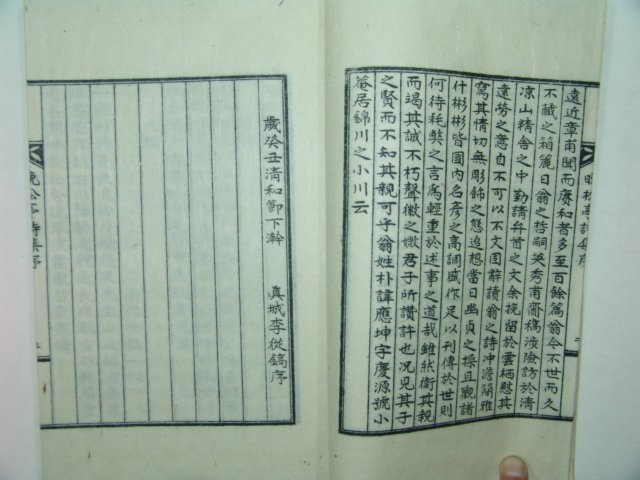 遠近章甫聞而賡和者多至百餘篇翁今不世而久
不藏之箱麗日翁之哲嗣英秀甫齎稿涉險訪於淸
凉山精舍之中勤請弁首之文余挽留於雲栖慰其
遠勞之意自不可以不文固辭讀翁之詩冲澹簡雅
寫其情切無彫飾之態追想當日幽貞之操且觀諸
什彬彬皆國內名彦之高調盛作足以刊傳於世則
何待耗獘之言爲輕重於述事之道哉雖然衛其親
而竭其誠不朽聲徽之媺君子所讚許也况見其子
之賢而不知其親可乎翁姓朴諱應坤字慶源號小
菴居錦川之小川云
歲癸丑淸和節下澣
眞城李從鎬序